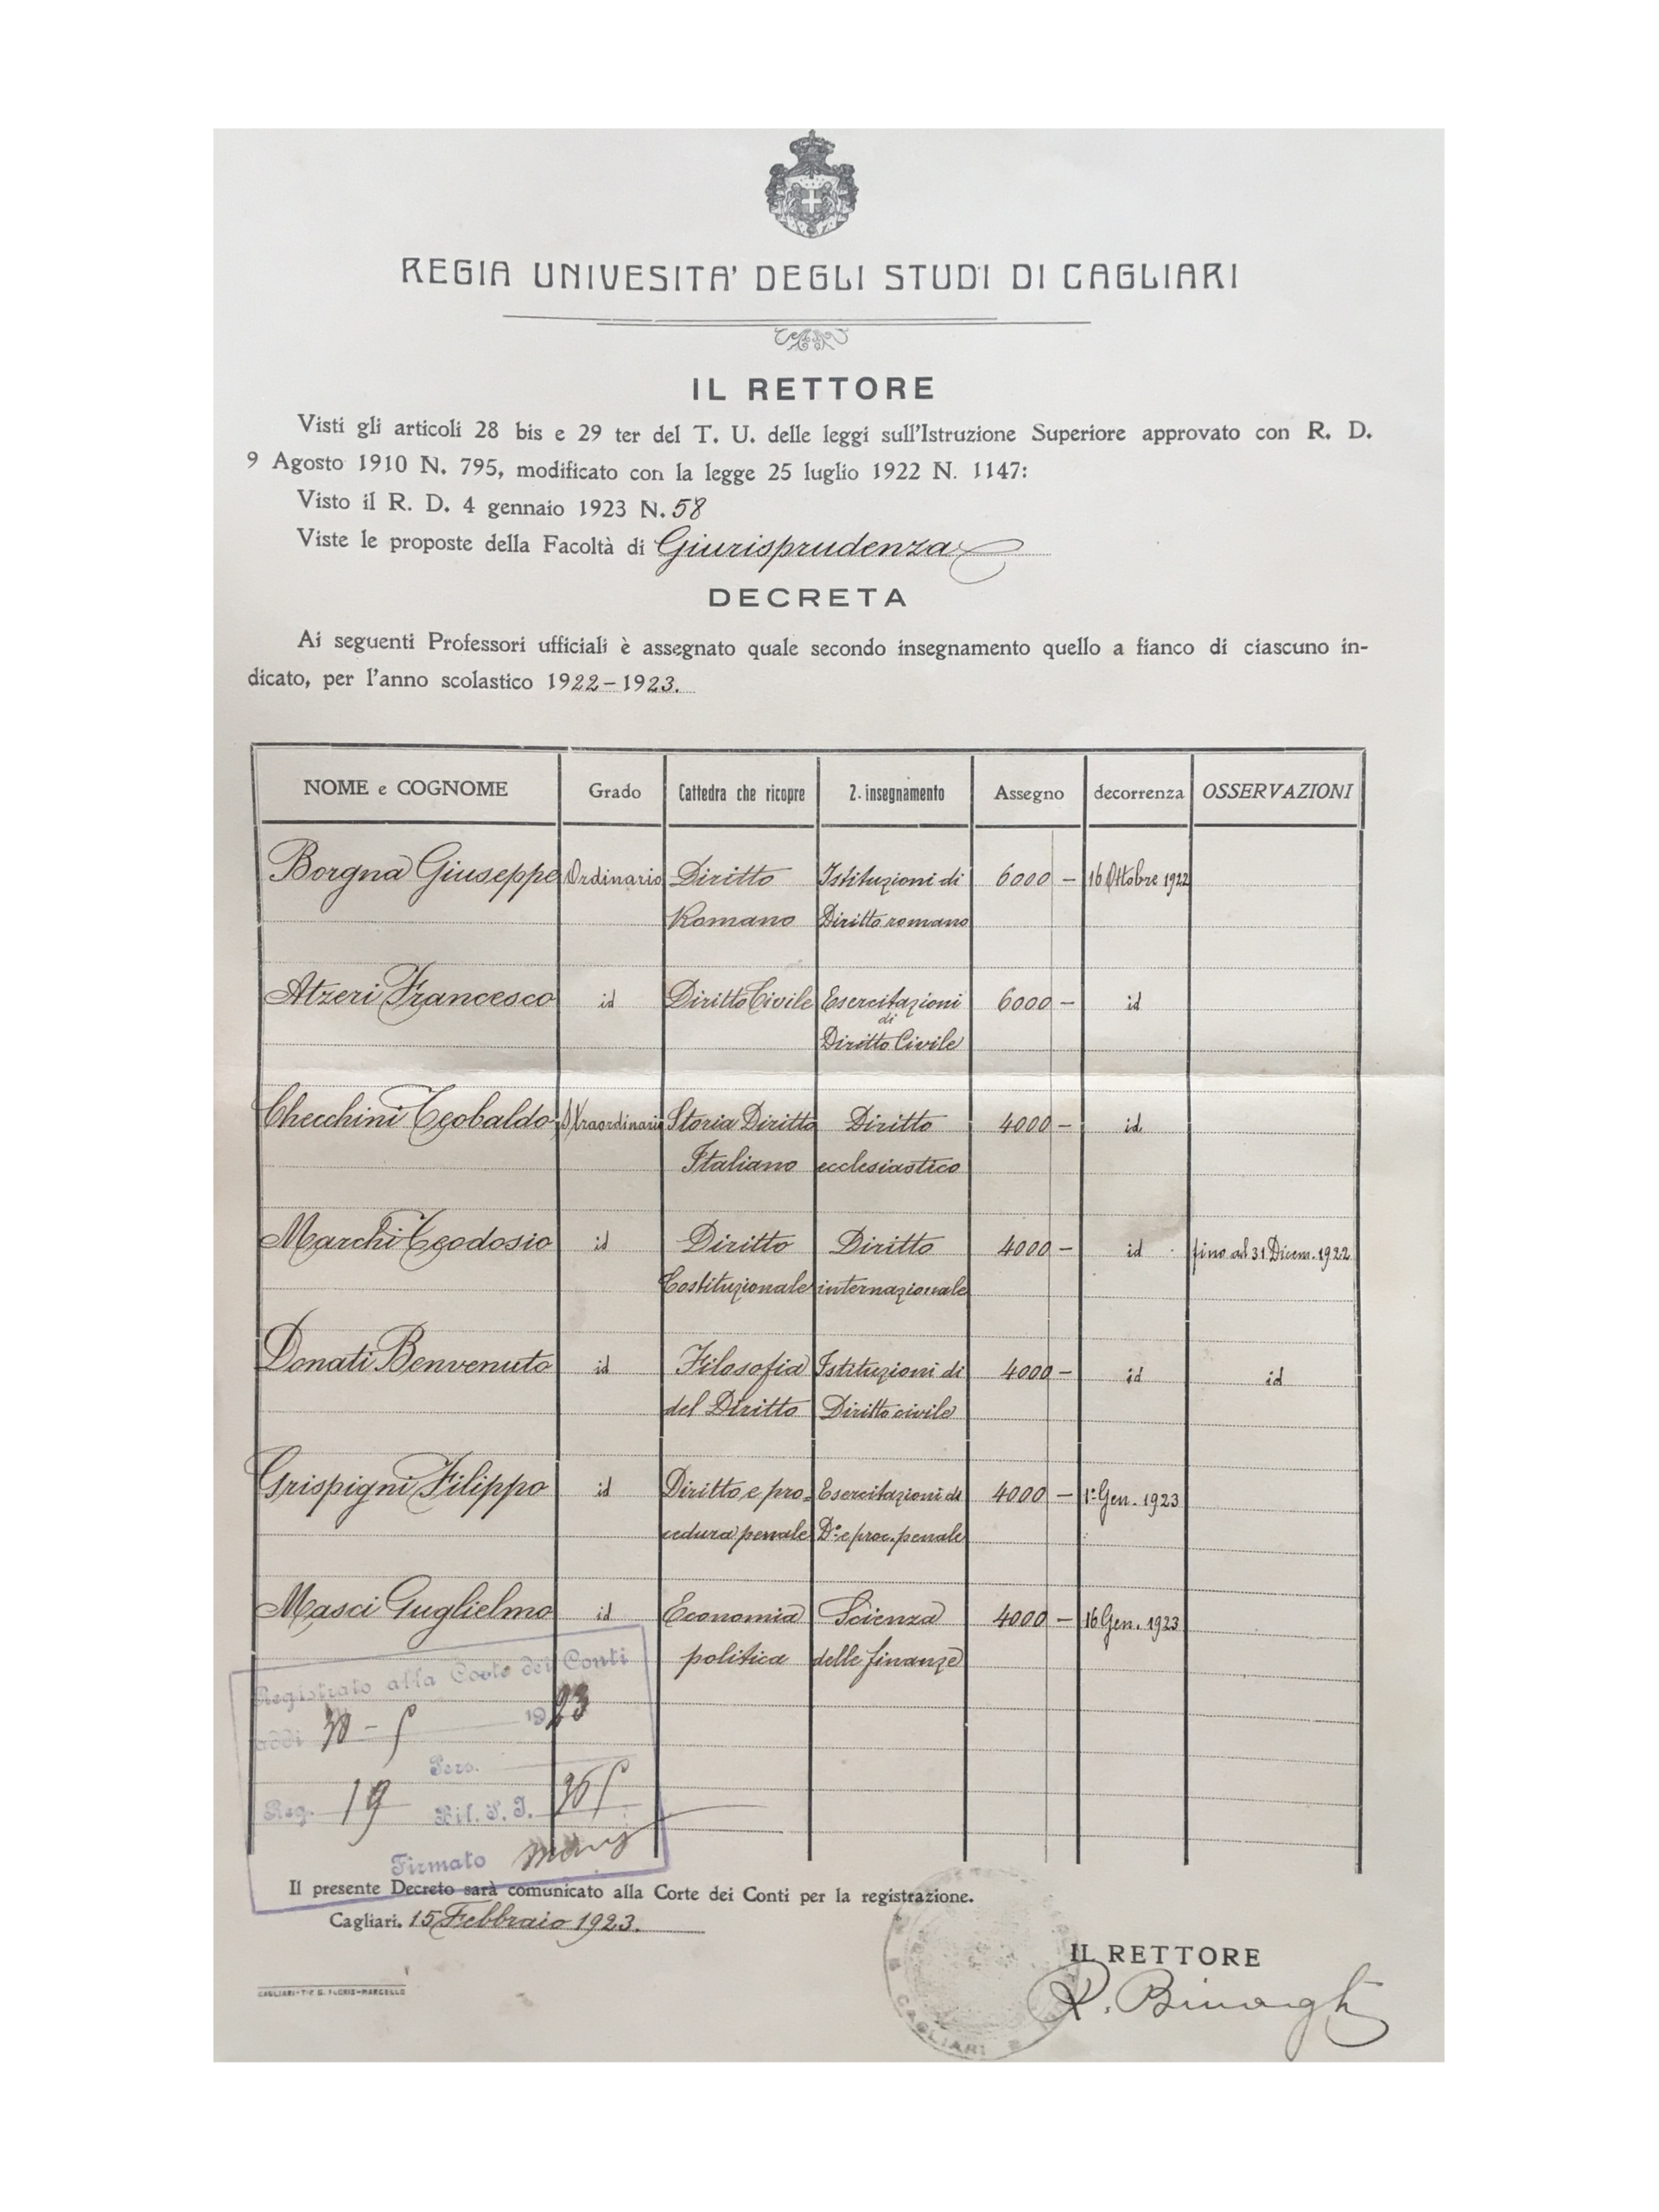 REGIA UNIVESITA' DEGLI STUDI DI CAGLIARI
IL RETTORE
Visti gli articoli 28 bis e 29 ter del T. U. delle leggi sull'Istruzione Superiore approvato con R. D.
9 Agosto 1910 N. 795, modificato con la legge 25 luglio 1922 N. 1147:
Visto il R. D. 4 gennaio 1923 N. 58
Viste le proposte della Facoltà di Giurisprudenza
DECRETA
Ai seguenti Professori ufficiali è assegnato quale secondo insegnamento quello a fianco di ciascuno in-
dicato, per l'anno scolastico 1922-1923.
NOME e COGNOME Grado Cattedra che ricopre 2. insegnamento Assegno decorrenza OSSERVAZIONI
Borgna Giuseppe Ordinario Diritto Istituzioni di 6000 - 16 Ottobre 1922
Romano Diritto romano
Atzeri Francesco id Diritto Civile Esercitazioni 6000 - id
di
Diritto Civile
Checchini Teobaldo Straordinario Storia Diritto Diritto 4000 - id
Italiano ecclesiastico
Marchi Teodosio id Diritto Diritto 4000 - id fino al 31 Dicem. 1922
Costituzionale internazionale
Donati Benvenuto id Filosofia Istituzioni di 4000 - id id
del Diritto Diritto civile
Grispigni Filippo id Diritto e pro= Esercitazioni di 4000 - 1° Gen. 1923
cedura penale D° e proc. penale
Masci Guglielmo id Economia Scienza 4000 - 16 Gen. 1923
politica delle finanze
Registrato alla Corte dei Conti
addì 1923
Pers.
Reg. 19 Bil. P. I.
Firmato
Il presente Decreto sarà comunicato alla Corte dei Conti per la registrazione.
Cagliari. 15 Febbraio 1923.
IL RETTORE
R. Binaghi
CAGLIARI-TIP G. FLORIS-MARCELLO
CAGLIARI